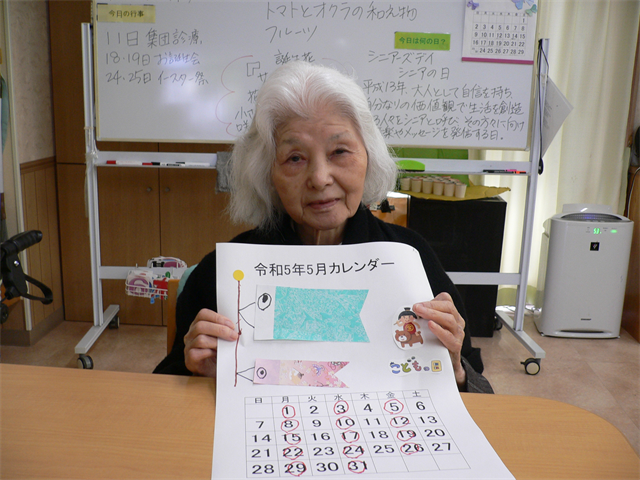 今日の行事
11日 集団診療
18-19日 お誕生会
24.25日 イースター祭
トマトとオクラの和え物
フルーツ
今日は何の日?
シニアーズデイ
シニアの日
平成13年、大人として自信を持ち
自分なりの価値観で生活を創造
る人々をシニアと呼び、その方々に向け
メッセージを発信する日。
令和5年5月カレンダー
こどもの
日 月 火 水 木 金 土
1 2 3 4 5 6
7 8 9 10 11 12 13
14 15 16 17 18 19 20
21 22 23 24 25 26 27
28 29 30 31